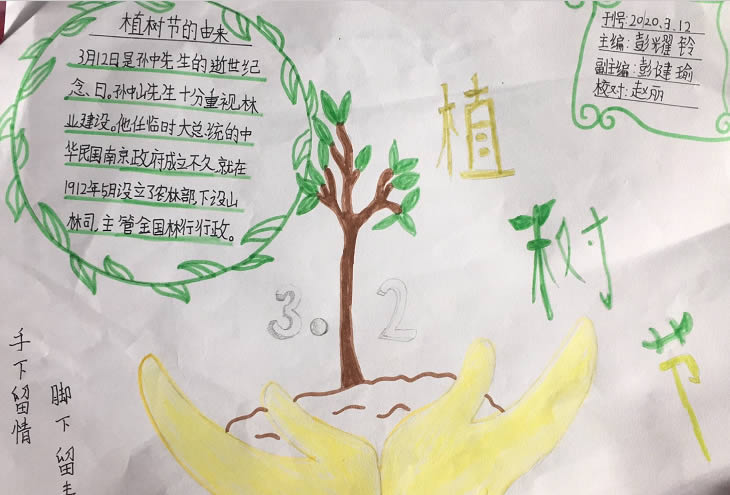 植树节的由来
3月12日是孙中先生的逝世纪
念、日。孙中山先生十分重视林
业建设。他任临时大总统的中
华民国南京政府成立不久,就在
1912年5月设立了农林部,下设山
林司,主管全国林行行政。
刊号:2020.3.12
主编:彭耀铃
副主编:彭健瑜
校对:赵丽
植
树
节
3. 2
手下留情
脚下留